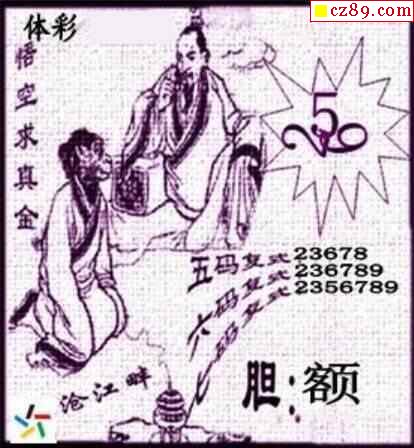 cz89.com
体彩
悟空求真金
256
五码复式23678
六码复式236789
七码复式2356789
沧江畔
胆:额